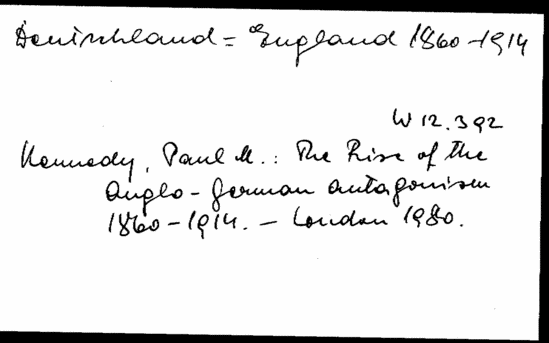 Deutschland = England 1860-1914
W 12.392
Kennedy, Paul M.: The Rise of the
Anglo-German antagonism
1860-1914. - London 1980.